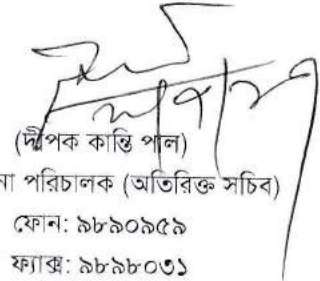 (দীপক কান্তি পাল)
না পরিচালক (অতিরিক্ত সচিব)
ফোন: ৯৮৯০৯৫৯
ফ্যাক্স: ৯৮৯৮০৩১